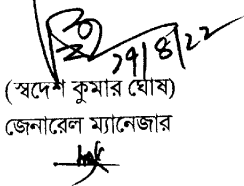 29/8/22
(স্বদেশ কুমার ঘোষ)
জেনারেল ম্যানেজার